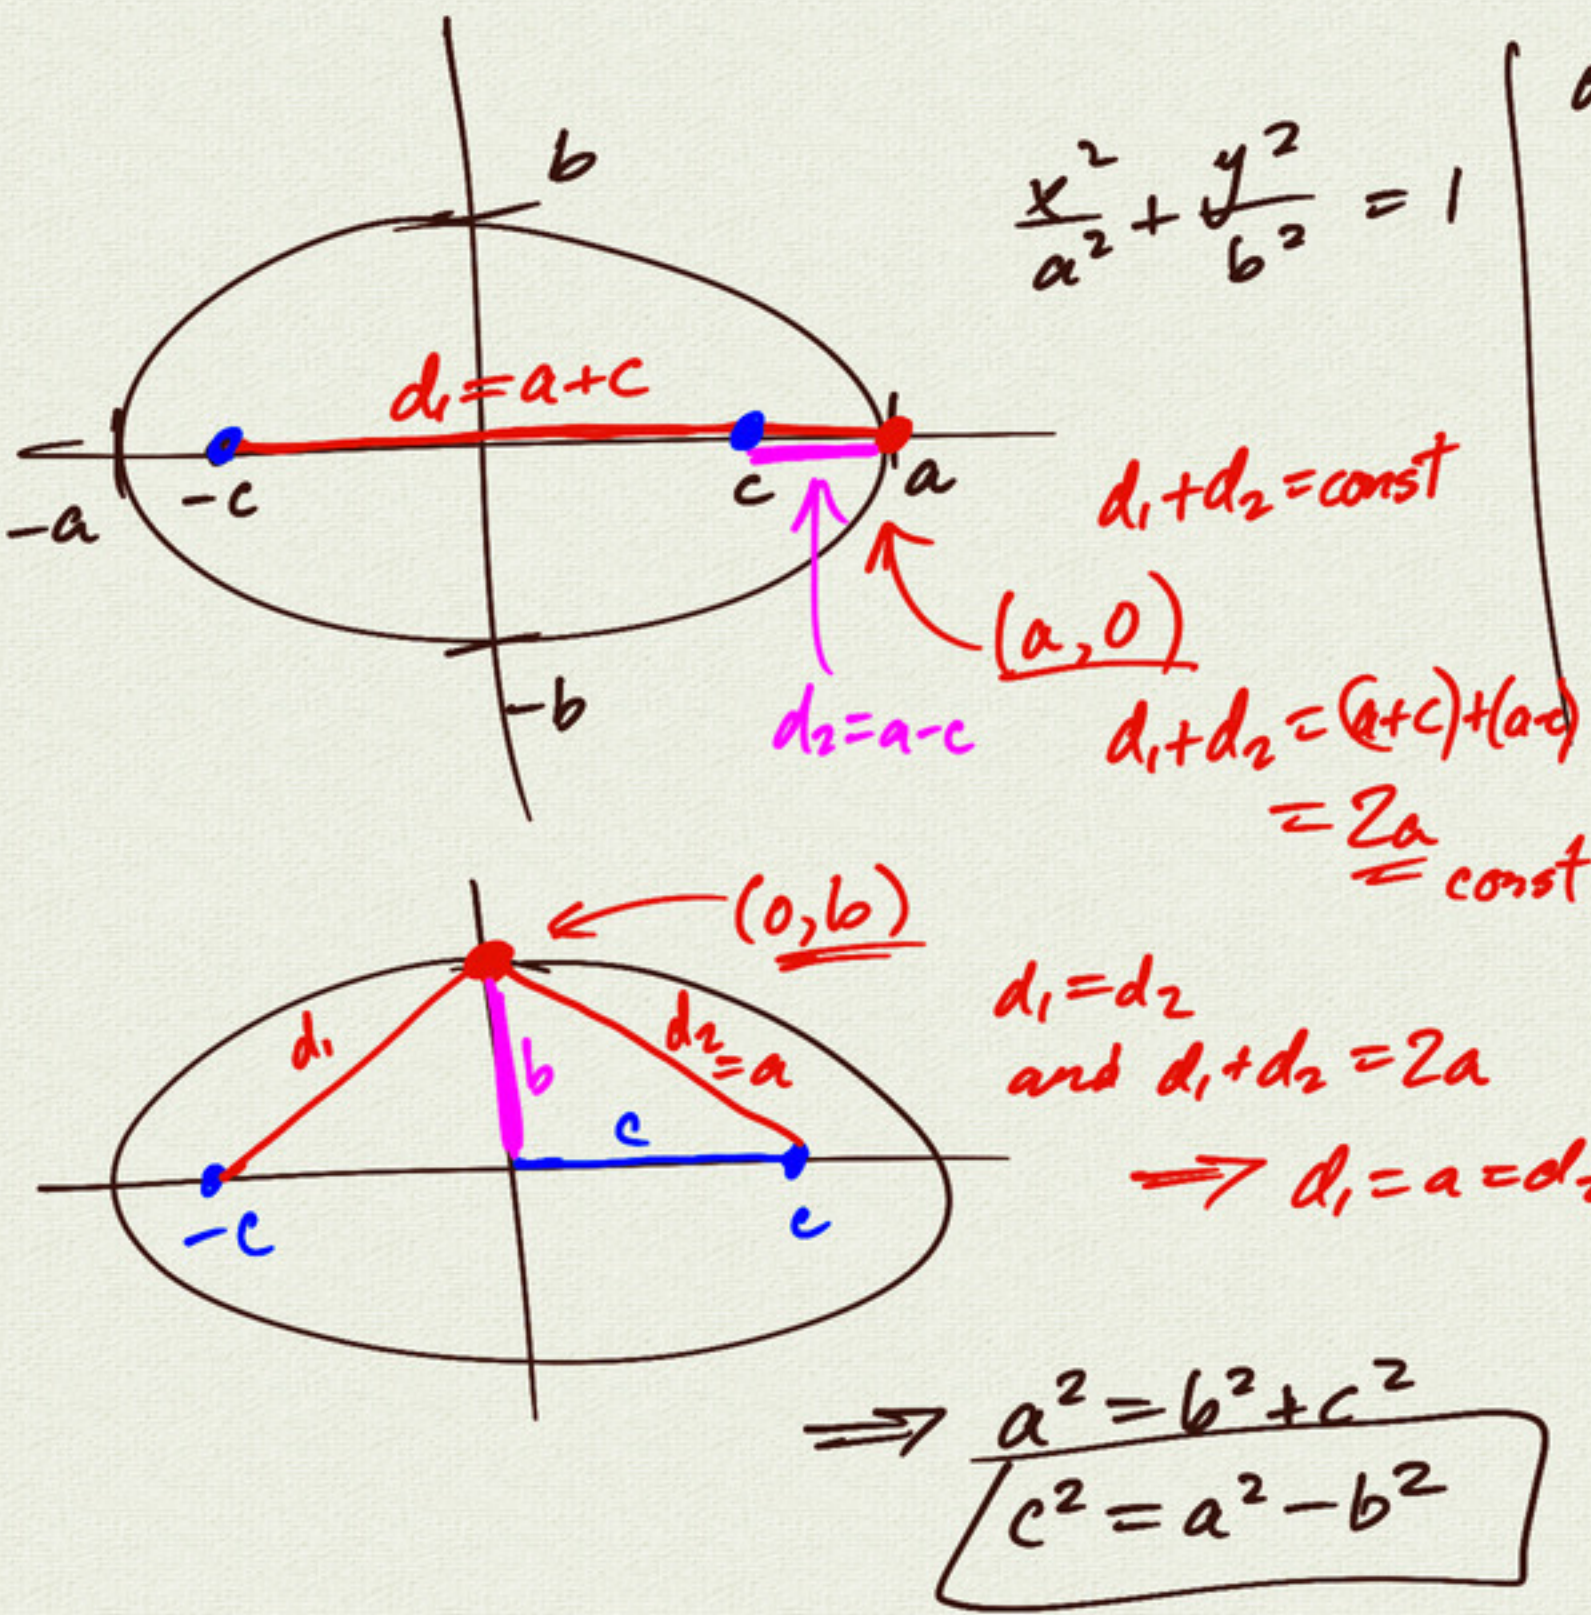 b
x²/a² + y²/b² = 1
d₁ = a + c
-a
-c
c
a
d₁ + d₂ = const
(a, 0)
-b
d₂ = a - c
d₁ + d₂ = (a + c) + (a - c)
= 2a
const
(0, b)
d₁
d₂
= a
b
c
-c
c
d₁ = d₂
and d₁ + d₂ = 2a
⇒ d₁ = a = d₂
⇒ a² = b² + c²
c² = a² - b²